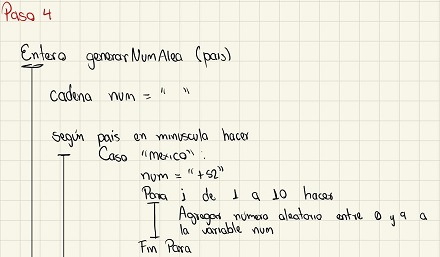 Paso 4
Entero generarNumAlea (pais)
cadena num = " "
según pais en minuscula hacer
Caso "mexico":
num = "+52"
Para j de 1 a 10 hacer
Agregar número aleatorio entre 0 y 9 a
la variable num
Fin Para